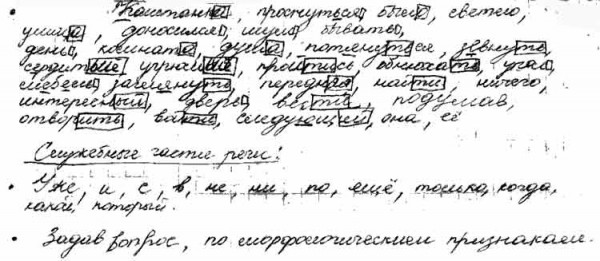 • Каштанка, проснуться, были, светло,
улица, доносился, шум, бывать,
день, комната, душа, потянуться, зевнуть,
сердитый, угрюмый, пройтись, обнюхать, угол,
мебель, заглянуть, передняя, найти, ничего,
интересный, дверь, вести, подумав,
отворить, войти, следующей, она, её
Служебные части речи:
• Уже, и, с, в, не, ни, по, ещё, только, когда,
какой, который.
• Задав вопрос, по морфологическим признакам.